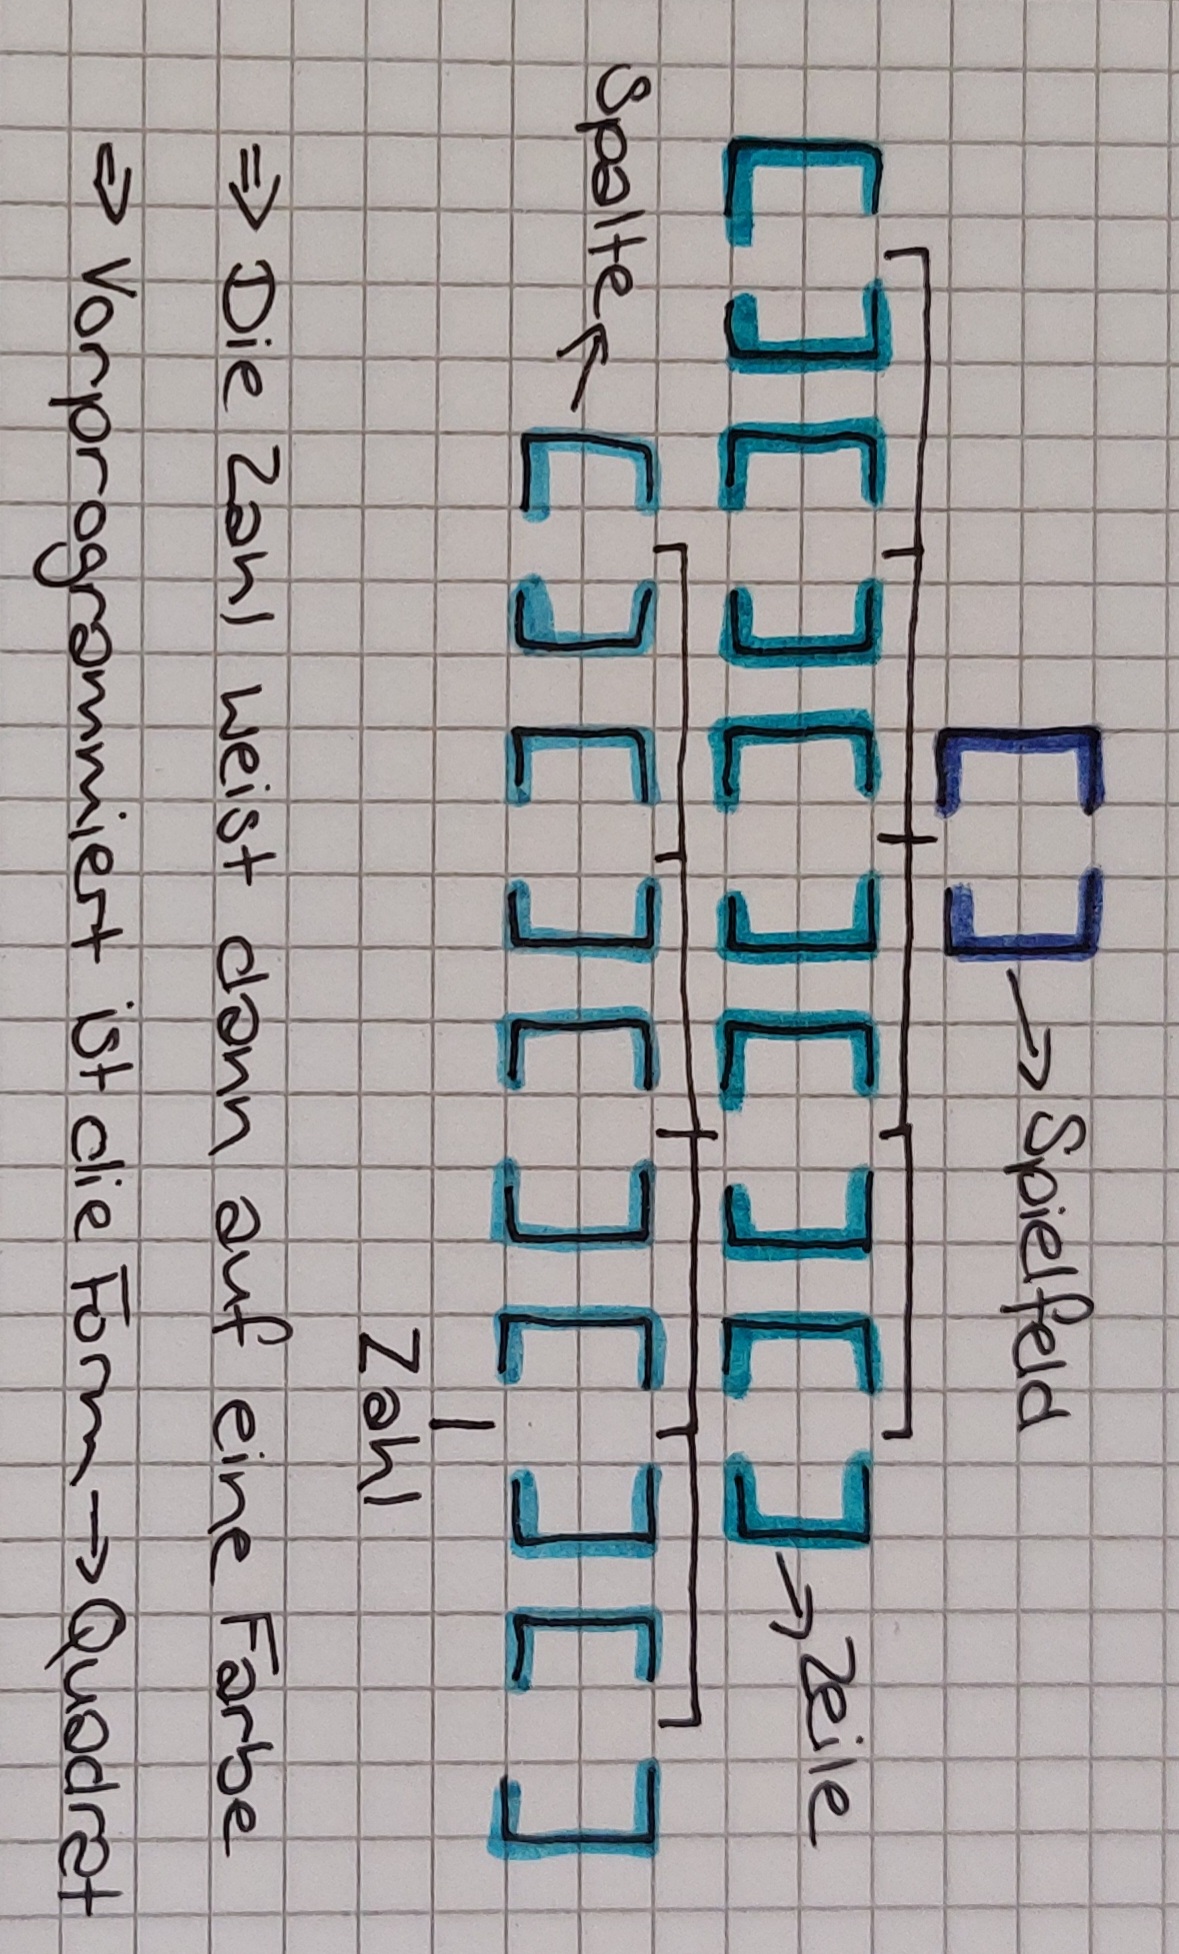 [ ] → Spielfeld
[ ] [ ] [ ] [ ] [ ] → Zeile
Spalte ← [ ] [ ] [ ] [ ] [ ]
Zahl
⇒ Die Zahl weist dann auf eine Farbe
⇒ Vorprogrammiert ist die Form → Quadrat